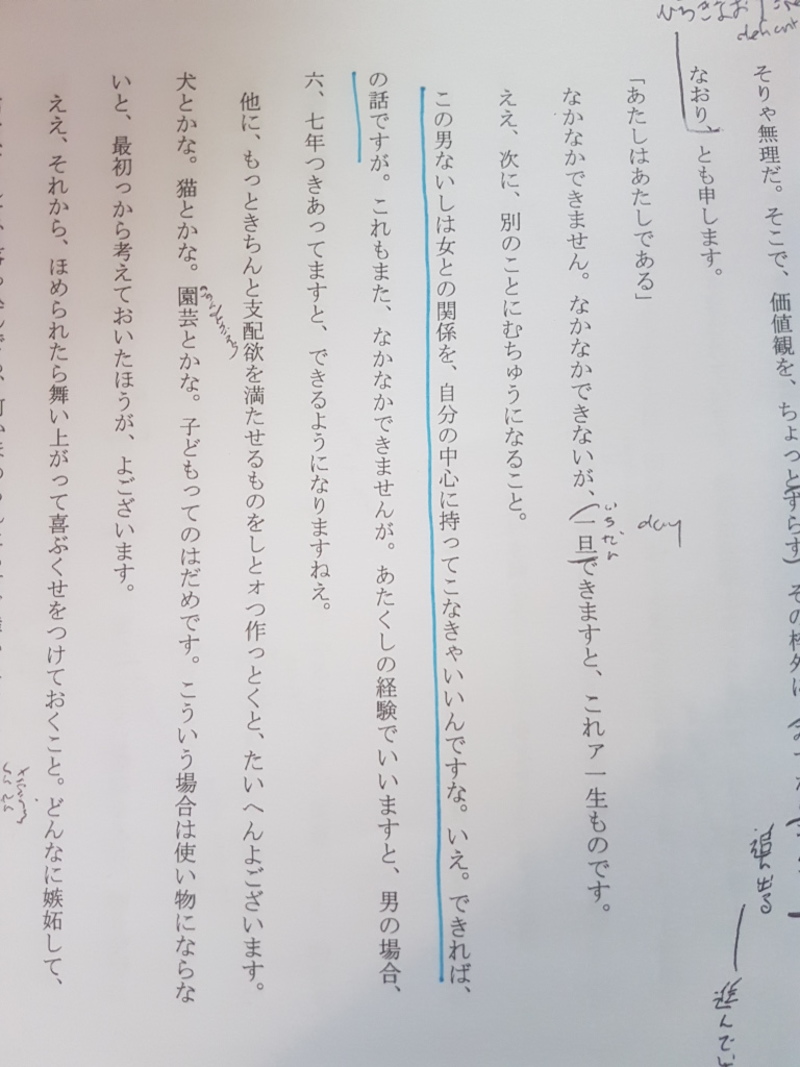 そりゃ無理だ。そこで、価値観を、ちょっとずらす。その枠外に
なおり、とも申します。
「あたしはあたしである」
なかなかできません。なかなかできないが、一旦できますと、これァ一生ものです。
いったん
day
ええ、次に、別のことにむちゅうになること。
この男ないしは女との関係を、自分の中心に持ってこなきゃいいんですな。いえ。できれば、
の話ですが。これもまた、なかなかできませんが。あたくしの経験でいいますと、男の場合、
六、七年つきあってますと、できるようになりますねえ。
他に、もっときちんと支配欲を満たせるものをしとォつ作っとくと、たいへんよございます。
犬とかな。猫とかな。園芸とかな。子どもってのはだめです。こういう場合は使い物にならな
いと、最初っから考えておいたほうが、よございます。
ええ、それから、ほめられたら舞い上がって喜ぶくせをつけておくこと。どんなに嫉妬して、
追い出る